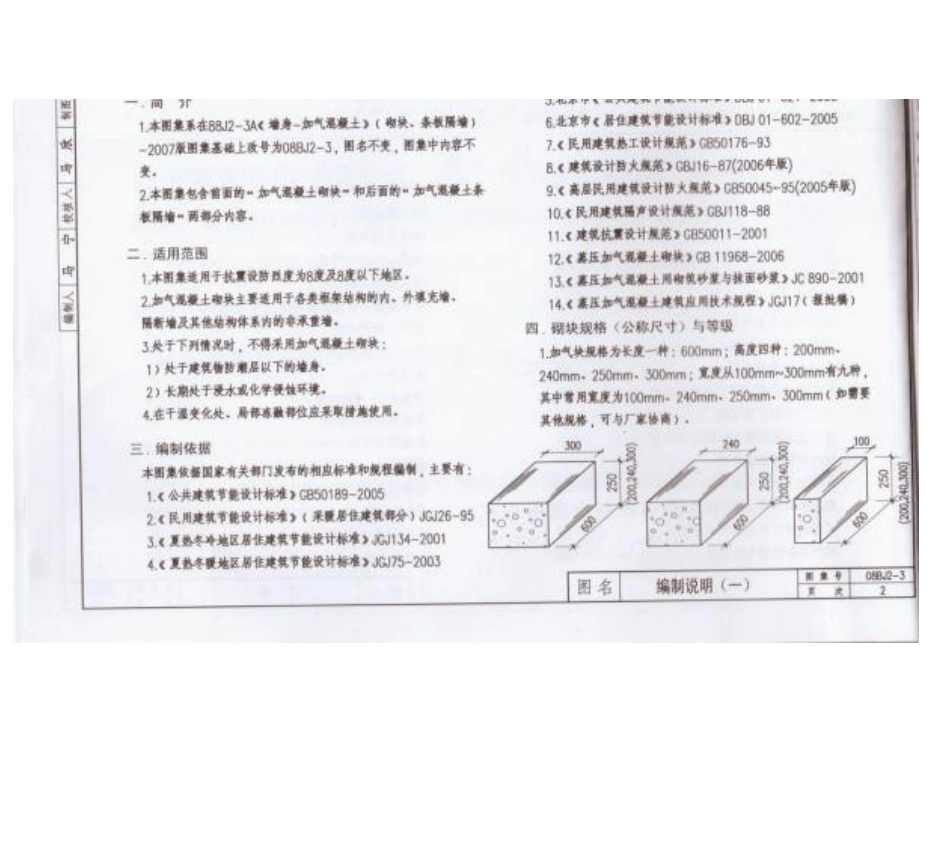 一．简 介
1.本图集系在88J2-3A《墙身-加气混凝土》（砌块、条板隔墙）
-2007版图集基础上改号为08BJ2-3，图名不变，图集中内容不
变。
2.本图集包含前面的“加气混凝土砌块”和后面的“加气混凝土条
板隔墙”两部分内容。
二．适用范围
1.本图集适用于抗震设防烈度为8度及8度以下地区。
2.加气混凝土砌块主要适用于各类框架结构的内、外填充墙、
隔断墙及其他结构体系内的非承重墙。
3.处于下列情况时，不得采用加气混凝土砌块：
1）处于建筑物防潮层以下的墙身。
2）长期处于浸水或化学侵蚀环境。
4.在干湿变化处、局部冻融部位应采取措施使用。
三．编制依据
本图集依据国家有关部门发布的相应标准和规程编制，主要有：
1.《公共建筑节能设计标准》GB50189-2005
2.《民用建筑节能设计标准》（采暖居住建筑部分）JGJ26-95
3.《夏热冬冷地区居住建筑节能设计标准》JGJ134-2001
4.《夏热冬暖地区居住建筑节能设计标准》JGJ75-2003
6.北京市《居住建筑节能设计标准》DBJ 01-602-2005
7.《民用建筑热工设计规范》GB50176-93
8.《建筑设计防火规范》GBJ16-87(2006年版)
9.《高层民用建筑设计防火规范》GB50045-95(2005年版)
10.《民用建筑隔声设计规范》GBJ118-88
11.《建筑抗震设计规范》GB50011-2001
12.《蒸压加气混凝土砌块》GB 11968-2006
13.《蒸压加气混凝土用砌筑砂浆与抹面砂浆》JC 890-2001
14.《蒸压加气混凝土建筑应用技术规程》JGJ17（报批稿）
四．砌块规格（公称尺寸）与等级
1.加气块规格为长度一种：600mm；高度四种：200mm、
240mm、250mm、300mm；宽度从100mm~300mm有九种，
其中常用宽度为100mm、240mm、250mm、300mm（如需要
其他规格，可与厂家协商）。
300
250
(200,240,300)
600
240
250
(200,240,300)
600
100
250
(200,240,300)
600
图 名
编制说明（一）
图 集 号
08BJ2-3
页 次
2
制图
校核人
马
编制人
马 宁